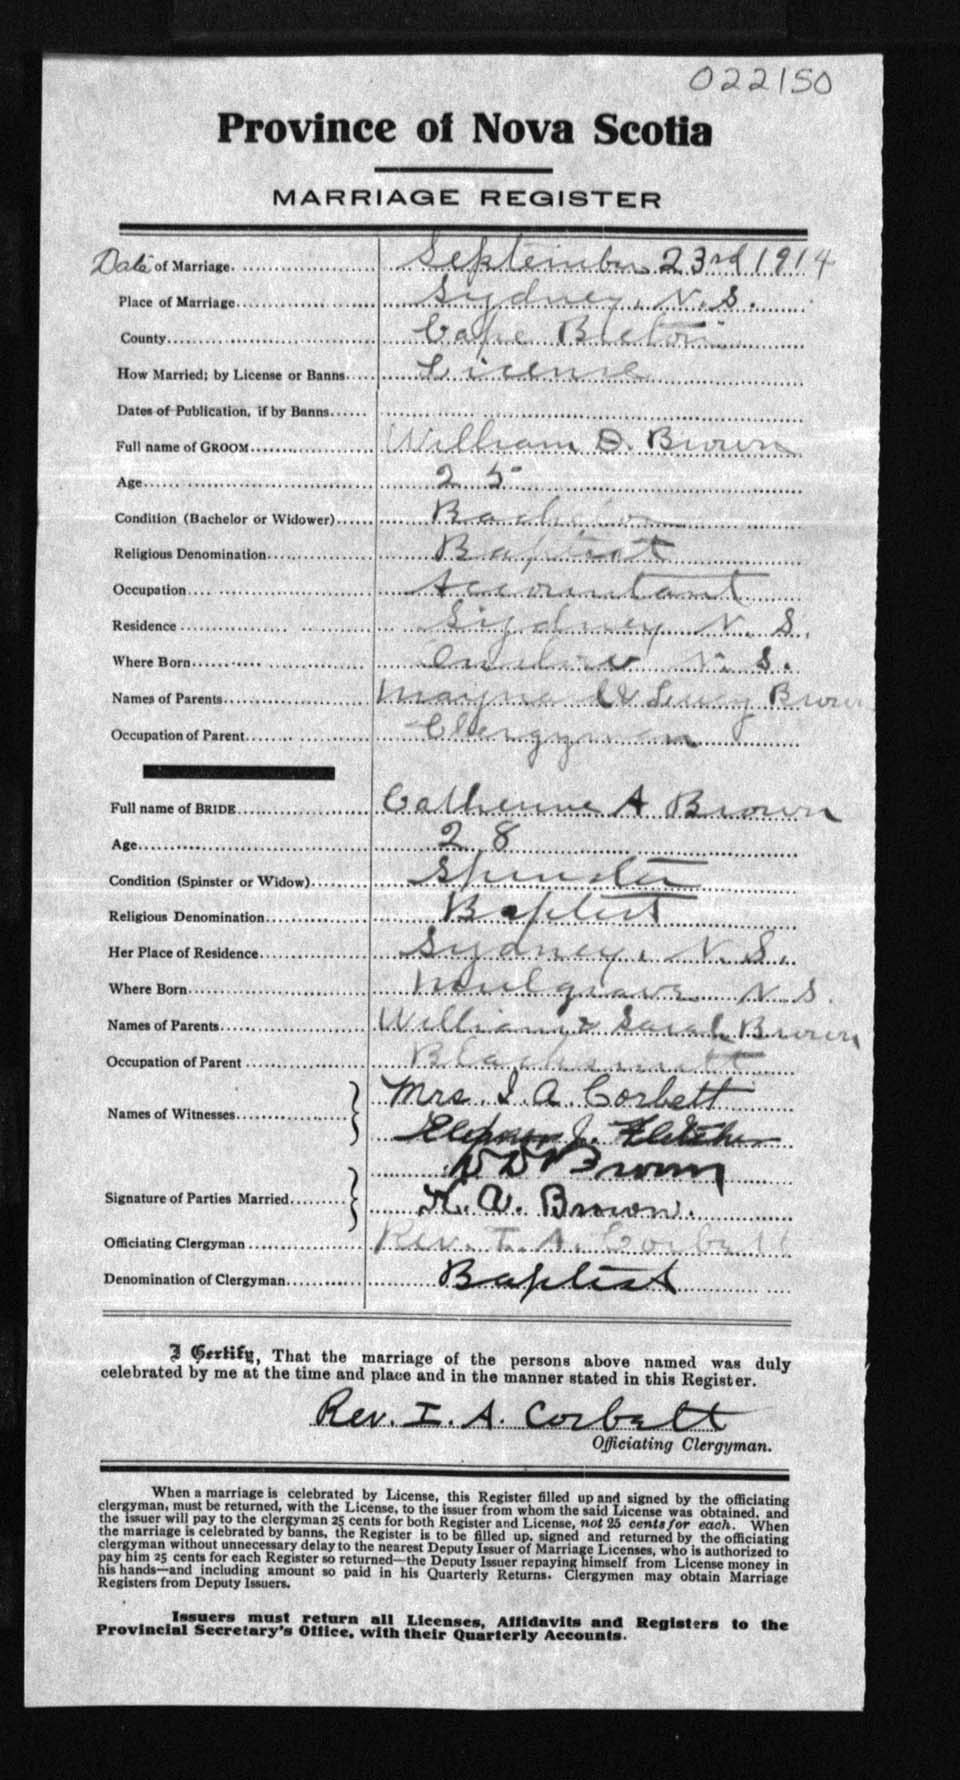 022150
Province of Nova Scotia
MARRIAGE REGISTER
Date of Marriage. September 23rd 1914
Place of Marriage Sydney, N.S.
County Cape Breton
How Married; by License or Banns License
Dates of Publication, if by Banns
Full name of GROOM William D. Brown
Age 25
Condition (Bachelor or Widower) Bachelor
Religious Denomination Baptist
Occupation Accountant
Residence Sydney N. S.
Where Born Onslow N. S.
Names of Parents Maynard & Lucy Brown
Occupation of Parent Clergyman
Full name of BRIDE Catherine A Brown
Age 28
Condition (Spinster or Widow) Spinster
Religious Denomination Baptist
Her Place of Residence Sydney, N. S.
Where Born Mulgrave N. S.
Names of Parents William & Sarah Brown
Occupation of Parent Blacksmith
Names of Witnesses Mrs. I. A. Corbett
Eleanor J. Fletcher
W D Brown
Signature of Parties Married K. A. Brown.
Officiating Clergyman Rev. I. A. Corbett
Denomination of Clergyman Baptist
I Certify, That the marriage of the persons above named was duly
celebrated by me at the time and place and in the manner stated in this Register.
Rev. I. A. Corbett
Officiating Clergyman.
When a marriage is celebrated by License, this Register filled up and signed by the officiating
clergyman, must be returned, with the License, to the issuer from whom the said License was obtained, and
the issuer will pay to the clergyman 25 cents for both Register and License, not 25 cents for each. When
the marriage is celebrated by banns, the Register is to be filled up, signed and returned by the officiating
clergyman without unnecessary delay to the nearest Deputy Issuer of Marriage Licenses, who is authorized to
pay him 25 cents for each Register so returned—the Deputy Issuer repaying himself from License money in
his hands—and including amount so paid in his Quarterly Returns. Clergymen may obtain Marriage
Registers from Deputy Issuers.
Issuers must return all Licenses, Affidavits and Registers to the
Provincial Secretary's Office, with their Quarterly Accounts.